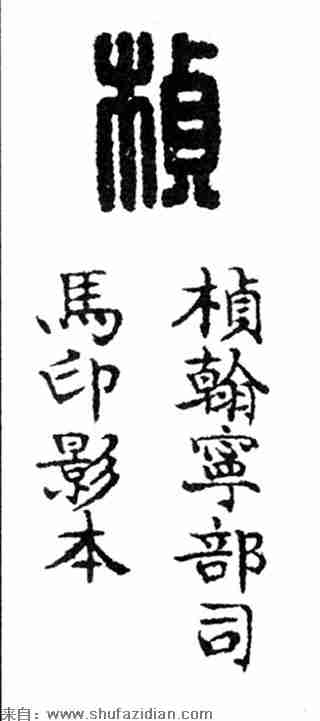 楨
楨翰寧部司
馬印影本
来自：www.shufazidian.com